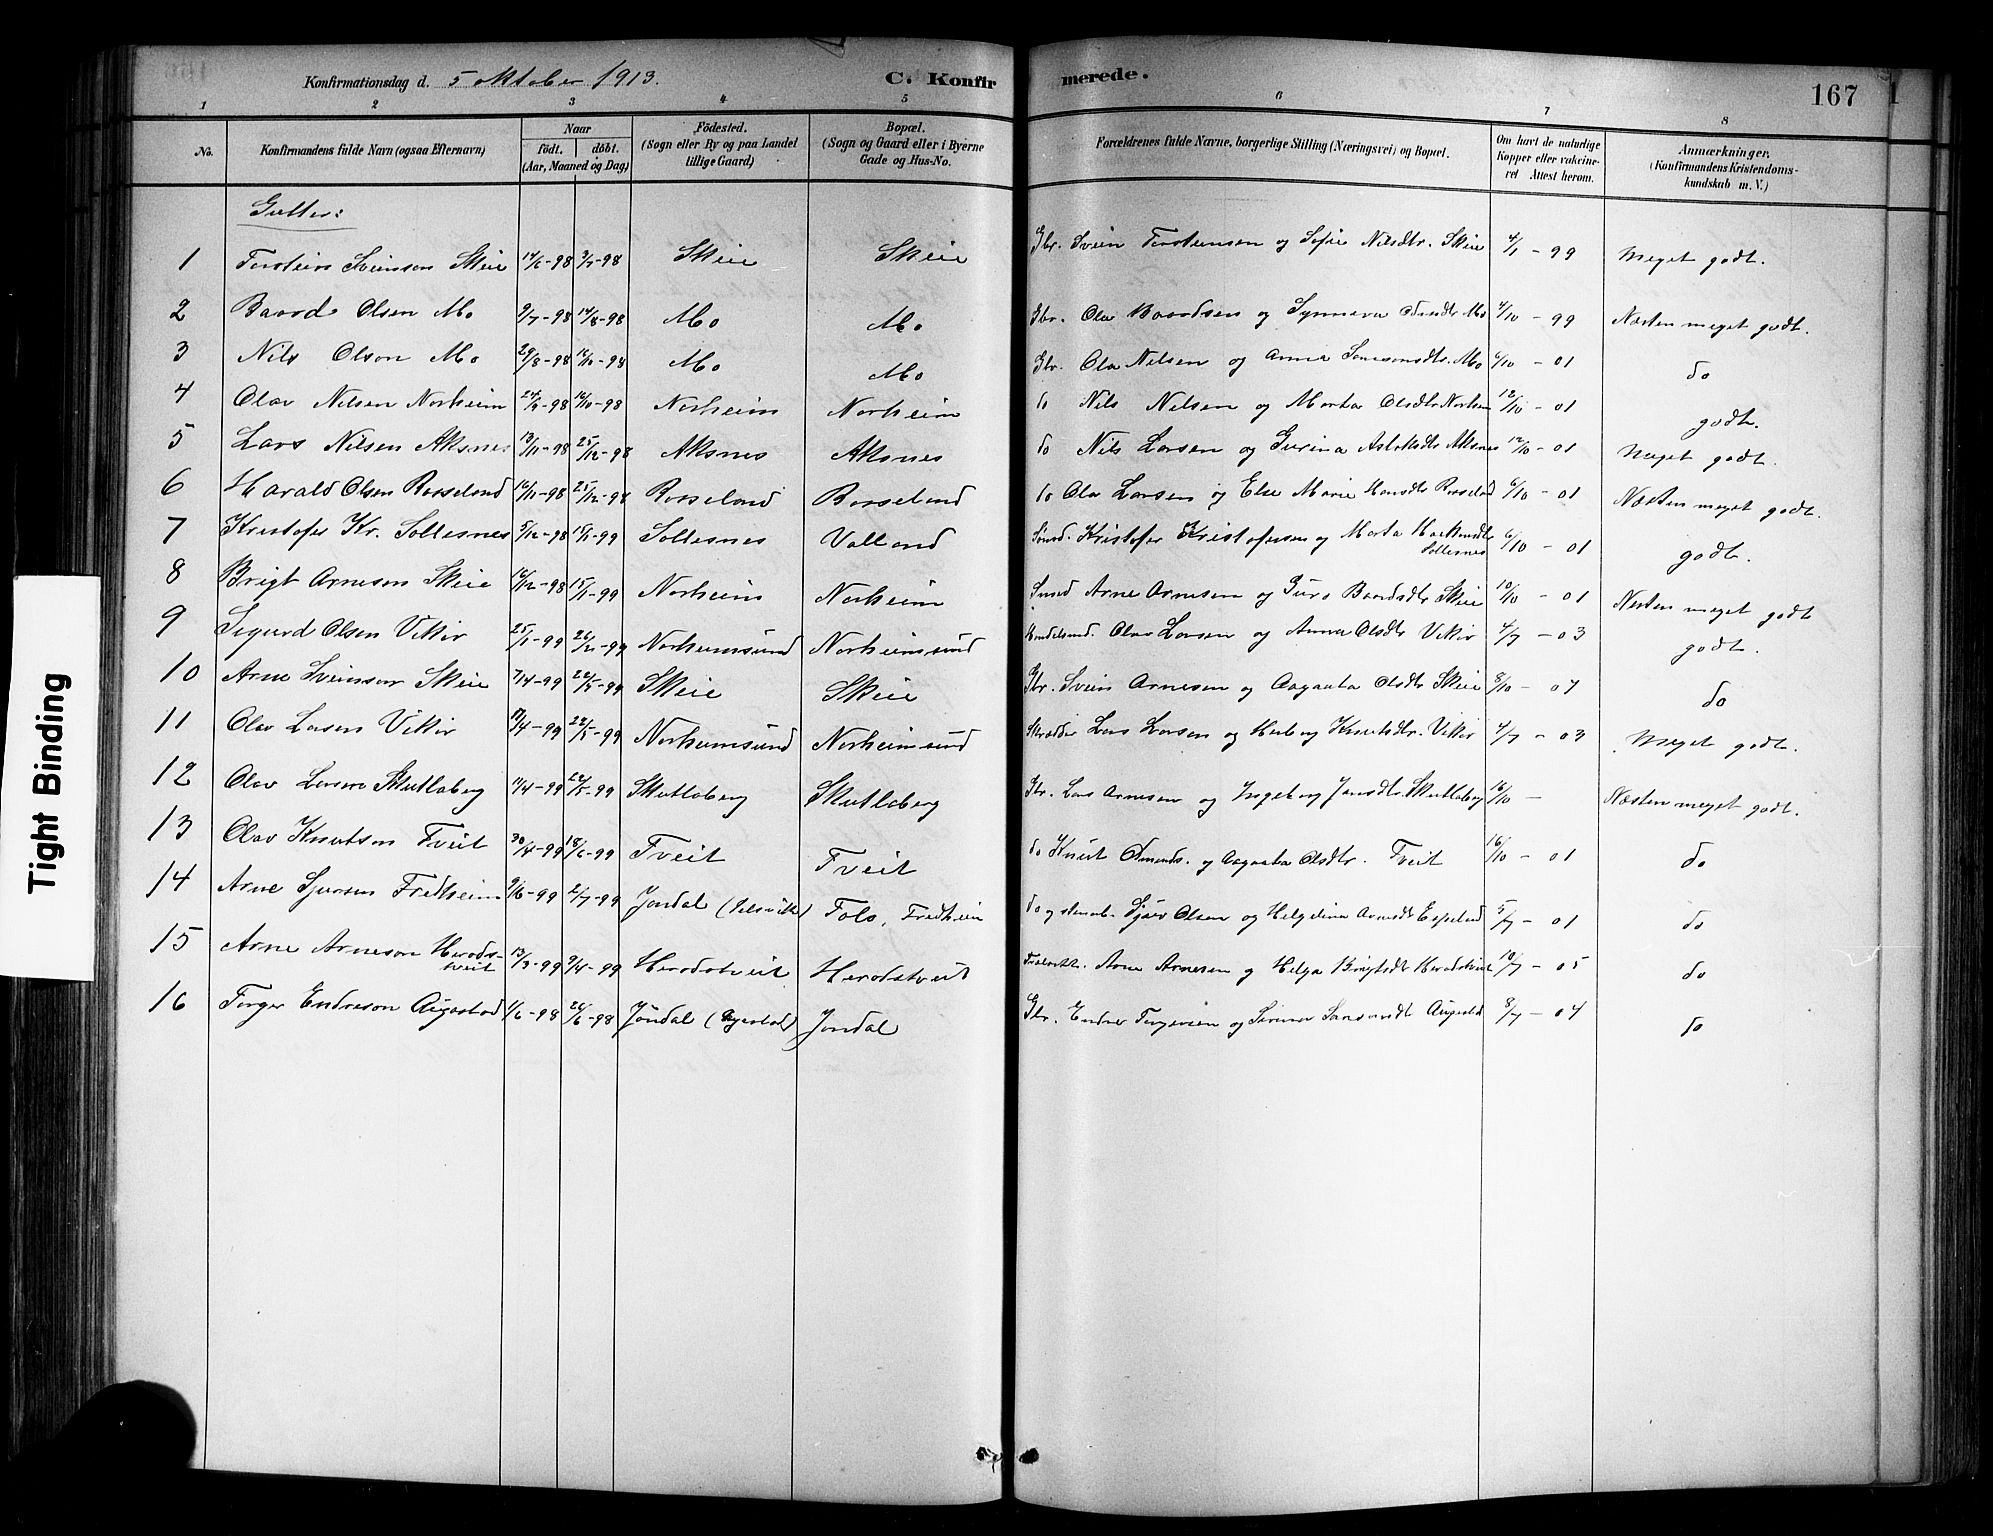 Konfirmationsdag d. 5 oktober 1913.
C. Konfirmerede.
167
1 2 3 4 5 6 7 8
No.
Konfirmandens fulde Navn (ogsaa Efternavn)
Naar
födt. döbt.
(Aar, Maaned og Dag)
Födested.
(Sogn eller By og paa Landet
tillige Gaard)
Bopæl.
(Sogn og Gaard eller i Byerne
Gade og Hus-No.
Forældrenes fulde Navne, borgerlige Stilling (Næringsvei) og Bopæl.
Om havt de naturlige
Kopper eller vakcine-
ret Attest herom.
Anmærkninger.
(Konfirmandens Kristendoms-
kundskab m. V.)
Gutter:
1 Torstein Sveinson Skeie 14/6-98 3/7-98 Skeie Skeie Gbr. Svein Torsteinsen og Sofie Nilsdtr. Skeie 4/1 - 99 Meget godt.
2 Baard Olsen Mo 9/7-98 14/8-98 Mo Mo Gbr. Olav Baardsen og Synneva Mo 4/10 - 99 Næsten meget godt.
3 Nils Olson Mo 29/8-98 16/10-98 Mo Mo Gbr. Ola Nilsen og Anna Mo 6/10 - 01 do
4 Olav Nilsen Norheim 24/9-98 16/10-98 Norheim Norheim do Nils Nilsen og Marta Olsdtr Norheim 12/10 - 01 godt.
5 Lars Nilsen Aksnes 13/11-98 25/12-98 Aksnes Aksnes do Nils Larsen og Gurina Aslaksdtr Aksnes 12/10 - 01 Meget godt.
6 Harald Olsen Rosseland 16/11-98 25/12-98 Rosseland Rosseland do Olav Larsen og Else Marie Hansdtr Rosseland 6/10 - 01 Næsten meget godt.
7 Kristofer Kr. Sollesnes 5/12-98 15/1-99 Sollesnes Valland Kristofer Kristofersen og Marta Sollesnes 6/10 - 01 godt.
8 Brigt Arnesen Skeie 16/12-98 15/1-99 Norheim Norheim Smed Arne Arnesen og Guro Baardsdtr Skeie 10/10 - 01 Næsten meget godt
9 Sigurd Olsen Vikør 25/1-99 26/2-99 Norheimsund Norheimsund Olav Larsen og Anna Olsdtr Vikør 4/7 - 03 godt.
10 Arne Sveinson Skeie 7/4-99 22/5-99 Skeie Skeie Gbr. Svein Arnesen og Aagaata Olsdtr Skeie 8/10 - 07 do
11 Olav Larsen Vikør 17/4-99 22/5-99 Norheimsund Norheimsund Skrædder Lars Larsen og Herborg Knutsdtr. Vikør 4/7 - 03 Meget godt.
12 Olav Larsen Skutlaberg 11/4-99 22/5-99 Skutlaberg Skutlaberg Gbr. Lars Arnesen og Ingeborg Jonsdtr. Skutlaberg 16/10 - Næsten meget godt.
13 Olav Knutson Tveit 30/4-99 18/6-99 Tveit Tveit do Knut Omunds. og Aagaata Olsdtr. Tveit 16/10 - 01 do
14 Arne Sjursen Fredheim 9/6-99 2/7-99 Jondal Tolo, Fredheim Sjur Olsen og Helgelina Arnesdtr Espeland 5/7 - 01 do
15 Arne Arneson Herods-
tveit 13/3-99 9/4-99 Herodstveit Herodstveit Arne Arnesen og Helga Brigtsdtr Herodstveit 10/7 - 05 do
16 Torger Endreson Augastad 1/6-98 26/6-98 Jondal Jondal Gbr. Endre Torgersen og Augestad 8/7 - 04 do
Tight Binding